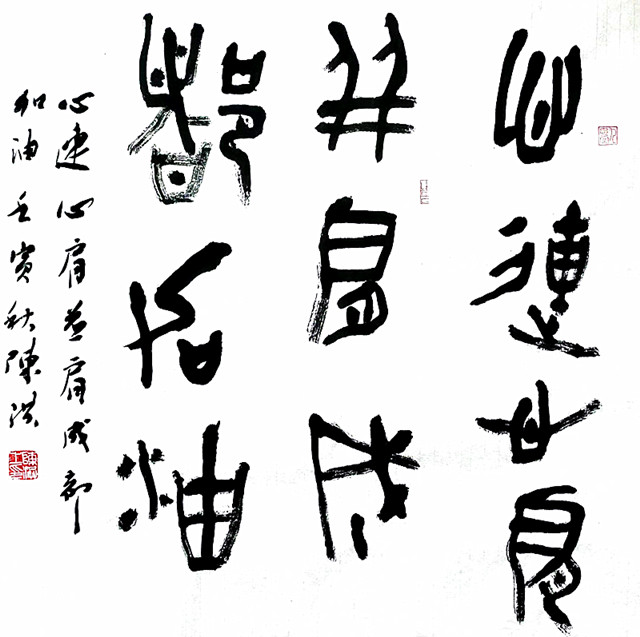 心連心肩
并肩成
都加油
心連心肩並肩成都
加油壬寅秋陳